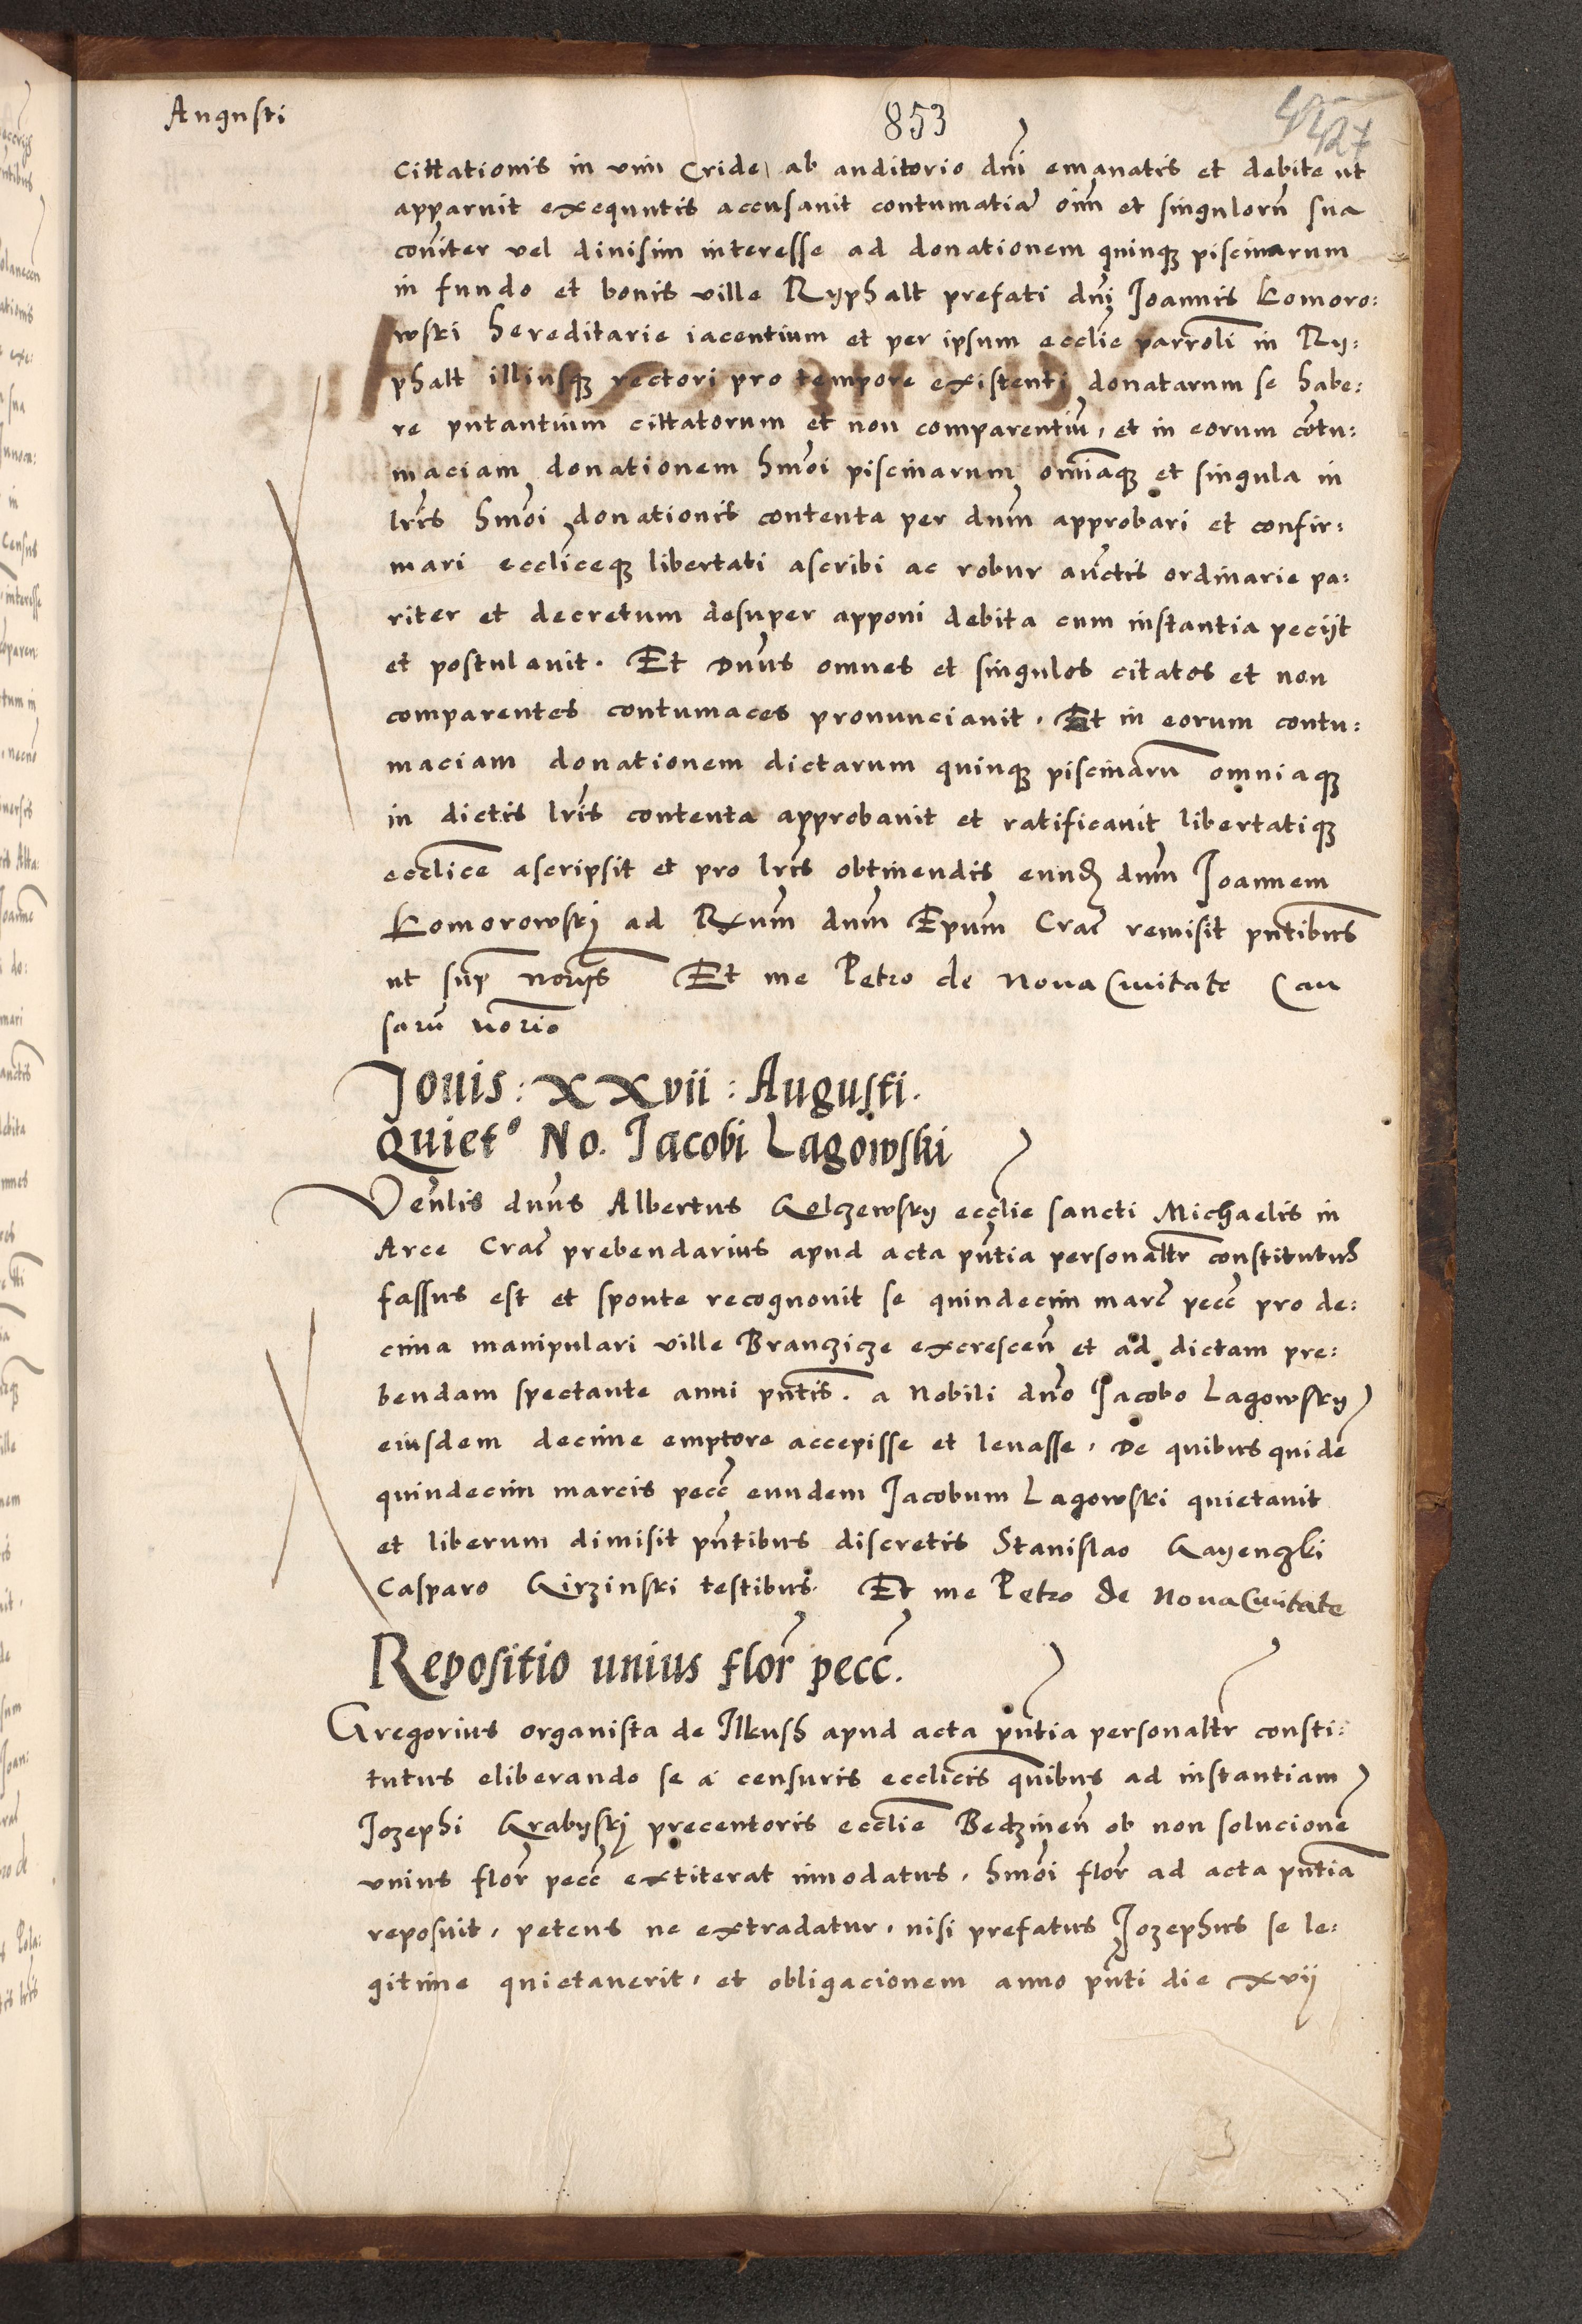 Augusti
853
427
cittationis in vim Cride ab auditorio dni emanatis et debite ut
apparuit exequutis accusavit contumatiā oim et singulorū sua
coniter vel divisim interesse ad donationem quinqꝫ piscinarum
in fundo et bonis ville Ryphalt prefati dni Joannis Komoro:
wski hereditarie iacentium et per ipsum ecclie parroli in Ry:
phalt illiusqꝫ rectori pro tempore existenti donatarum se habe:
re putantium cittatorum et non comparentiū, et in eorum cōtu:
maciam donationem hmoi piscinarum oīniaqꝫ et singula in
lris hmoi donationis contenta per dnm approbari et confir:
mari eccliceqꝫ libertati ascribi ac robur auctis ordinarie pa:
riter et decretum desuper apponi debita cum instantia peciit
et postulavit. Et Dnus omnes et singulos citatos et non
comparentes contumaces pronunciavit. Et in eorum contu:
maciam donationem dictarum quinqꝫ piscinarū omniaqꝫ
in dictis lris contenta approbavit et ratificavit libertatiqꝫ
ecclice ascripsit et pro lris obtinendis eundꝫ dnm Joannem
Komorowskÿ ad Rxum dnm Epum Crac̄ remisit pntibus
ut sup norijs Et me Petro de Nova Civitate Cau
sarū norio
Jovis: XXvii: Augusti.
Quiet° No. Jacobi Lagowski
Venlis dnus Albertus Golczewsky ecclie sancti Michaelis in
Arce Crac̄ prebendarius apud acta pntia personaltr constitutus
fassus est et sponte recognovit se quindecim marc̄ pecc̄ pro de:
cima manipulari ville Branczicze excrescen̄ et ad dictam pre:
bendam spectante anni pntis. a Nobili dno Jacobo Lagowsky
eiusdem decime emptore accepisse et levasse, De quibus quidē
quindecim marcis pecc̄ eundem Jacobum Lagowski quietavit
et liberum dimisit pntibus discretis Stanislao Gayenczki
Casparo Girzinski testibus. Et me Petro de Nova Civitate
Repositio unius flor̄ pecc̄.
Gregorius organista de Ilkush apud acta pntia personaltr consti:
tutus eliberando se a censuris ecclicis quibus ad instantiam
Jozephi Grabyskÿ precentoris ecclie Bedzinen̄ ob non solucionē
unius flor̄ pecc̄ extiterat innodatus, hmoi flor̄ ad acta pntia
reposuit, petens ne extradatur, nisi prefatus Jozephus se le:
gitime quietaverit, et obligacionem anno pnti die xvij